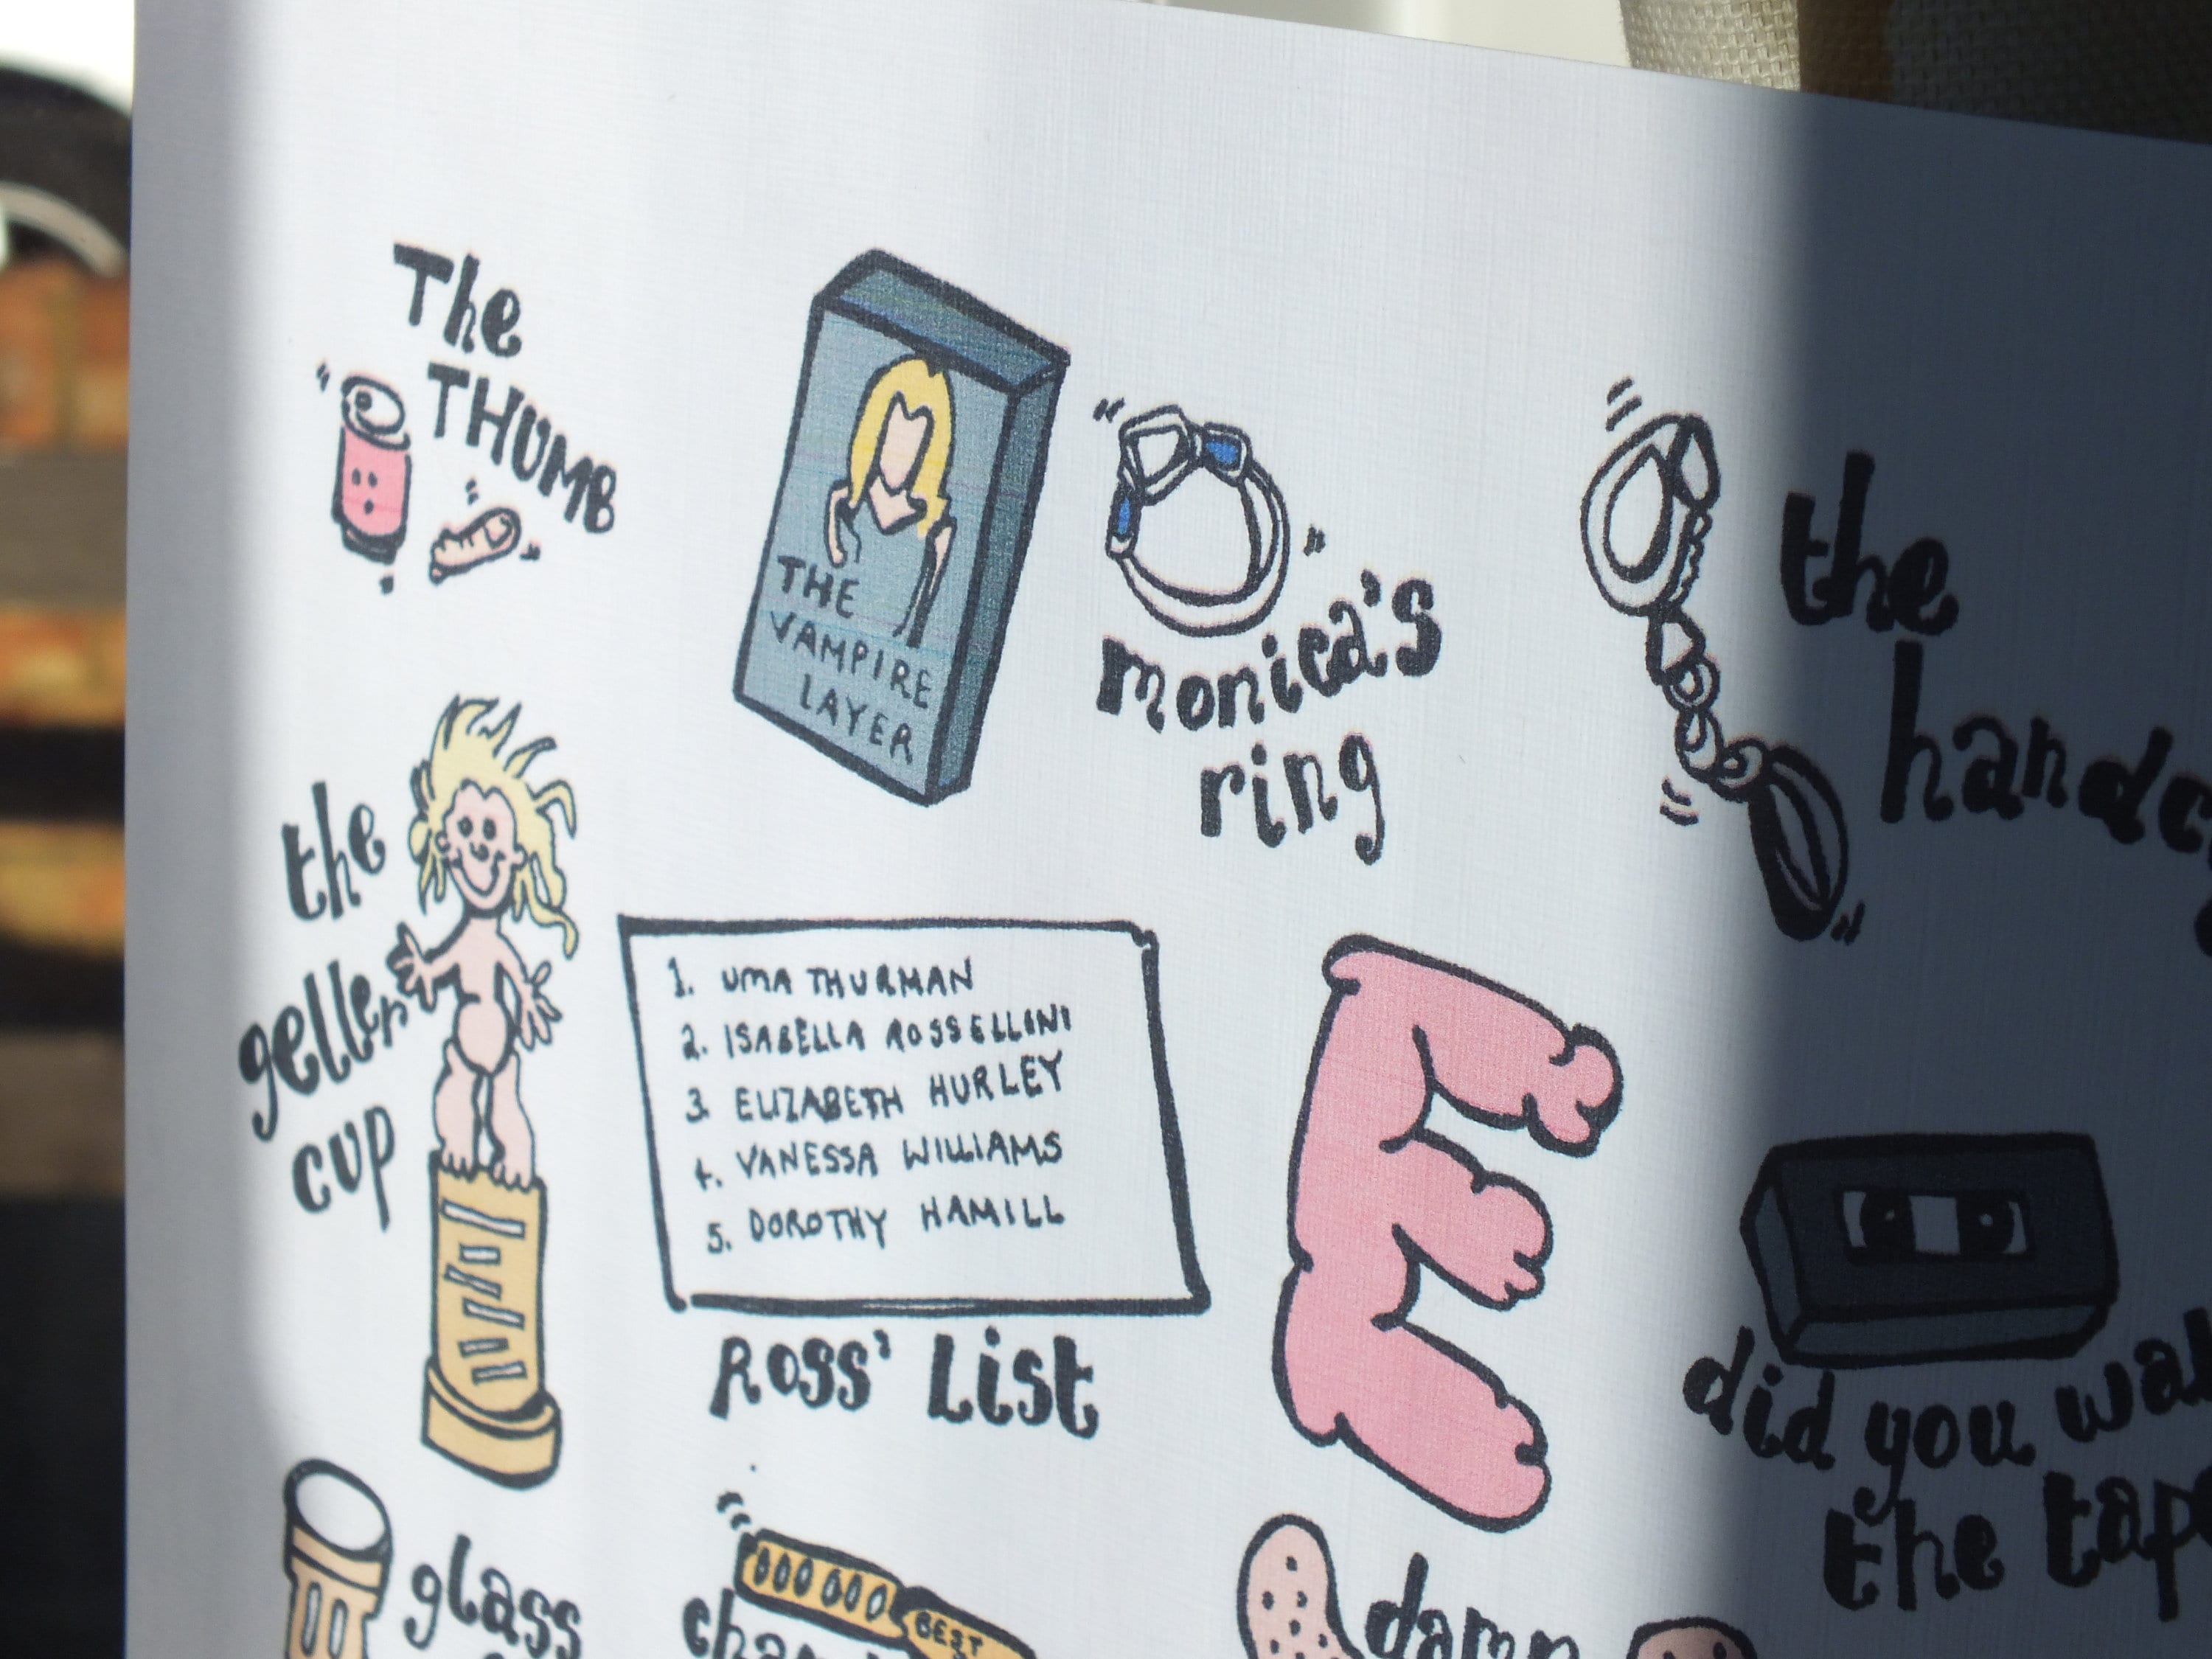 The
THUMB
THE
VAMPIRE
LAYER
monica's
ring
the
the
geller
cup
1. UMA THURMAN
2. ISABELLA ROSSELLINI
3. ELIZABETH HURLEY
4. VANESSA WILLIAMS
5. DOROTHY HAMILL
ROSS' List
did you
the
glass
BEST
damn